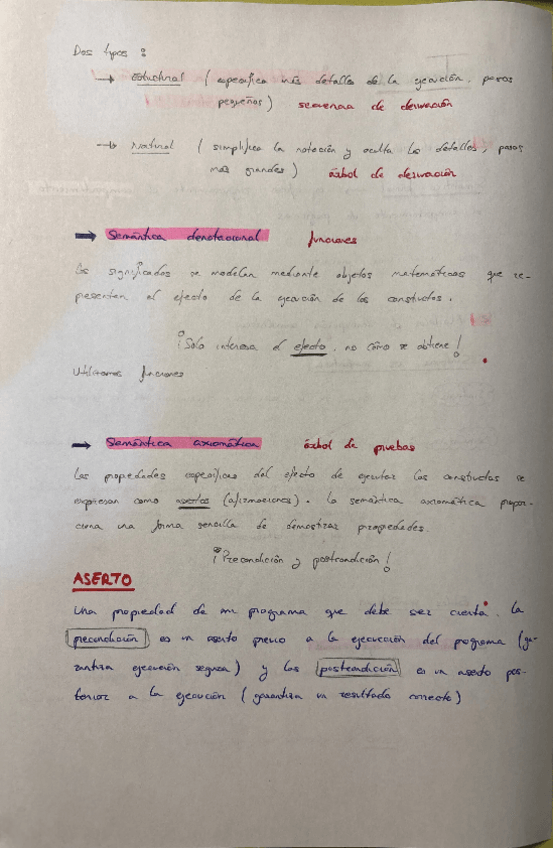 Dos tipos :
→ estructural ( especifica más detalles de la ejecución, pasos
pequeños ) secuencia de derivación
→ Natural ( simplifica la notación y oculta los detalles, pasos
más grandes ) árbol de derivación
→ Semántica denotacional funciones
Los significados se modelan mediante objetos matemáticos que re-
presenten el efecto de la ejecución de los constructos.
¡Solo interesa el efecto, no cómo se obtiene!
Utilizamos funciones
→ Semántica axiomática árbol de pruebas
Las propiedades específicas del efecto de ejecutar las constructos se
expresan como asertos (afirmaciones). La semántica axiomática propor-
ciona una forma sencilla de demostrar propiedades.
¡Precondición y postcondición!
ASERTO
Una propiedad de mi programa que debe ser cierta. La
precondición es un aserto previo a la ejecución del programa (ga-
rantiza ejecución segura) y las postcondición es un aserto pos-
terior a la ejecución (garantiza un resultado correcto)